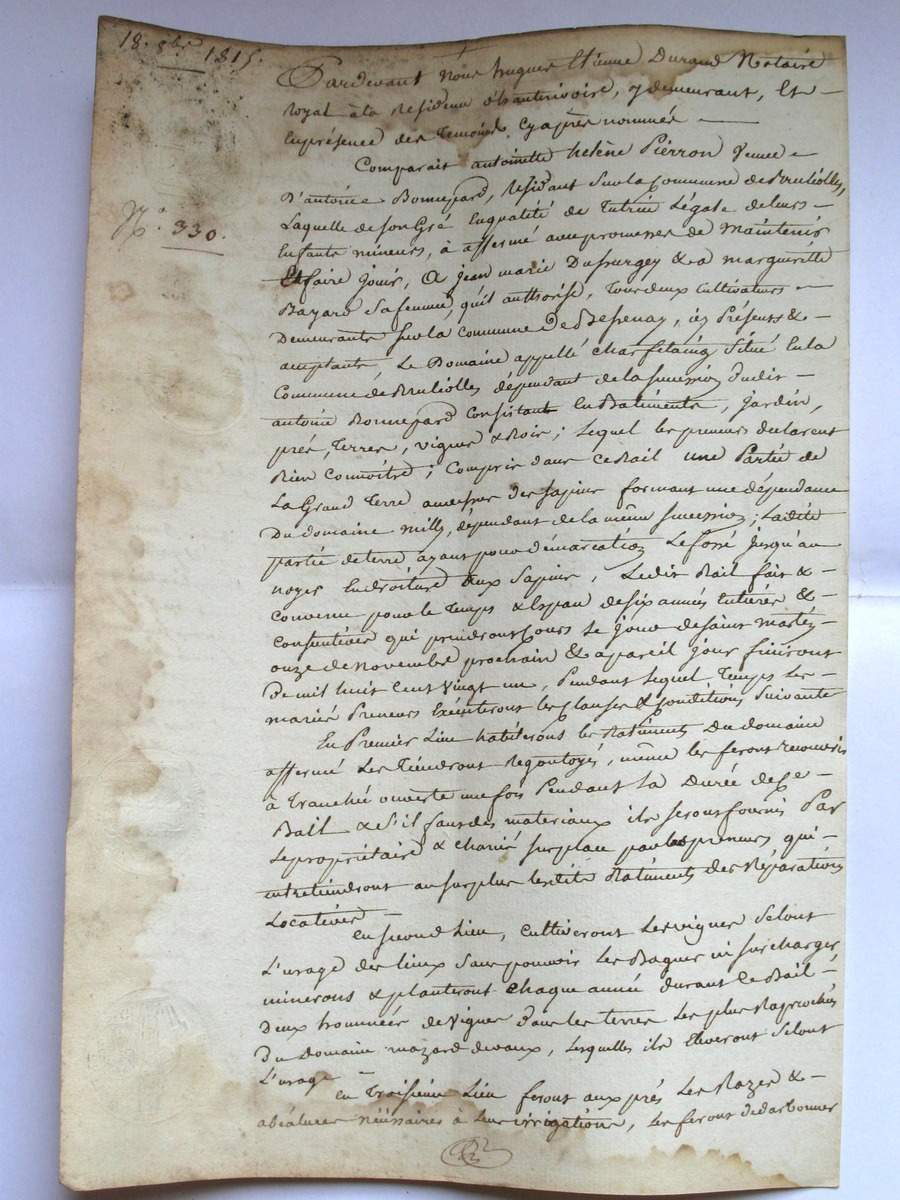 18. 8bre 1815.
Pardevant Nous hugues Etienne Durand Notaire
royal à la Résidence , y demeurant, Et
En présence des Temoins Cy après nommés
N.° 330.
Comparait antoinette helène Pierron veuve
D'antoine Bonnepard, résidant sur la Commune de Bruliolles,
Laquelle de son Gré En qualité de Tutrice Légale de leurs
Enfants mineurs, à affermé avec promesse de Maintenir
Et faire jouir, à jean marie Dussurgey & à margueritte
Bazard Sa femme, qu'il authorise, Tous deux Cultivateurs
Demeurants sur la Commune de Bessenay, icy Présents &
acceptants, Le Domaine appellé Situé En la
Commune de Bruliolles dépendant de la succession dudit
antoine Bonnepard Consistant En Batiments, jardin,
prés, Terres, vignes & Bois; Lequel les preneurs declarent
Bien Connoître; Compris dans Ce Bail une Partie de
La Grand Terre des sapins formant une dépendance
Du domaine milly, dépendant de la même succession; Ladite
partie de terre ayant pour démarcation Le fossé jusqu'au
noyer En droiture aux Sapins, Ledit Bail fait &
convenu pour le Temps & Espace de six années Entières &
Consécutives qui prendront Cours Le jour de Saint martin
onze de novembre prochain & à pareil jour finiront
De mil huit Cent vingt un, Pendant Lequel Temps Les
mariés Preneurs Exécuteront les Clauses & Conditions Suivante
En Premier Lieu habiterons les Batiments Du domaine
affermé Les Tiendront Regoutoyés, même les feront recouvrir
à Tranché ouverte une fois Pendant La Durée de Ce
Bail & s'il faut des materiaux ils seront fournis Par
Le propriétaire & chariés sur place par les preneurs, qui
entretiendront au surplus lesdits Batiments des Réparations
Locatives
En second Lieu, Cultiveront Les vignes Selont
L'usage des lieux Sans pouvoir Les ni surcharger
minerons & planteront Chaque année durant Ce Bail
Deux hommées de vignes dans les terres Les plus Raprochées
Du Domaine , Lesquelles ils Eleveront Selont
L'usage
En Troisième Lieu feront aux prés Les Razes &
nécéssaires à Leur irrigations, Les feront dedarbonner